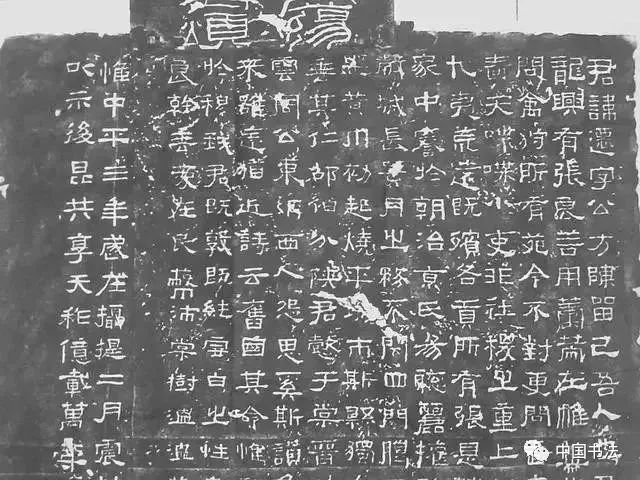 蕩
頌
君諱遷字公方陳留己吾人
龍興有張良善用籌策在帷
問禽狩所有苑令不對更問
嗇夫喋喋小吏非社稷之重上
八夷荒遠既殯各貢所有張是
家中謇於朝治京氏易聰麗權
長蠶月之務不閉四門臘
黃巾初起燒平城市斯縣獨
垂其仁邵伯分陝君懿于棠晉
雲周公東征西人怨思奚斯讚
來雖遠猶近詩云舊國其命惟
於穆我君既敦既純雪白之性
良幹垂愛在民蔽沛棠樹溫溫
惟中平三年歲在攝提二月震
以示後昆共享天祚億載萬年
中国书法